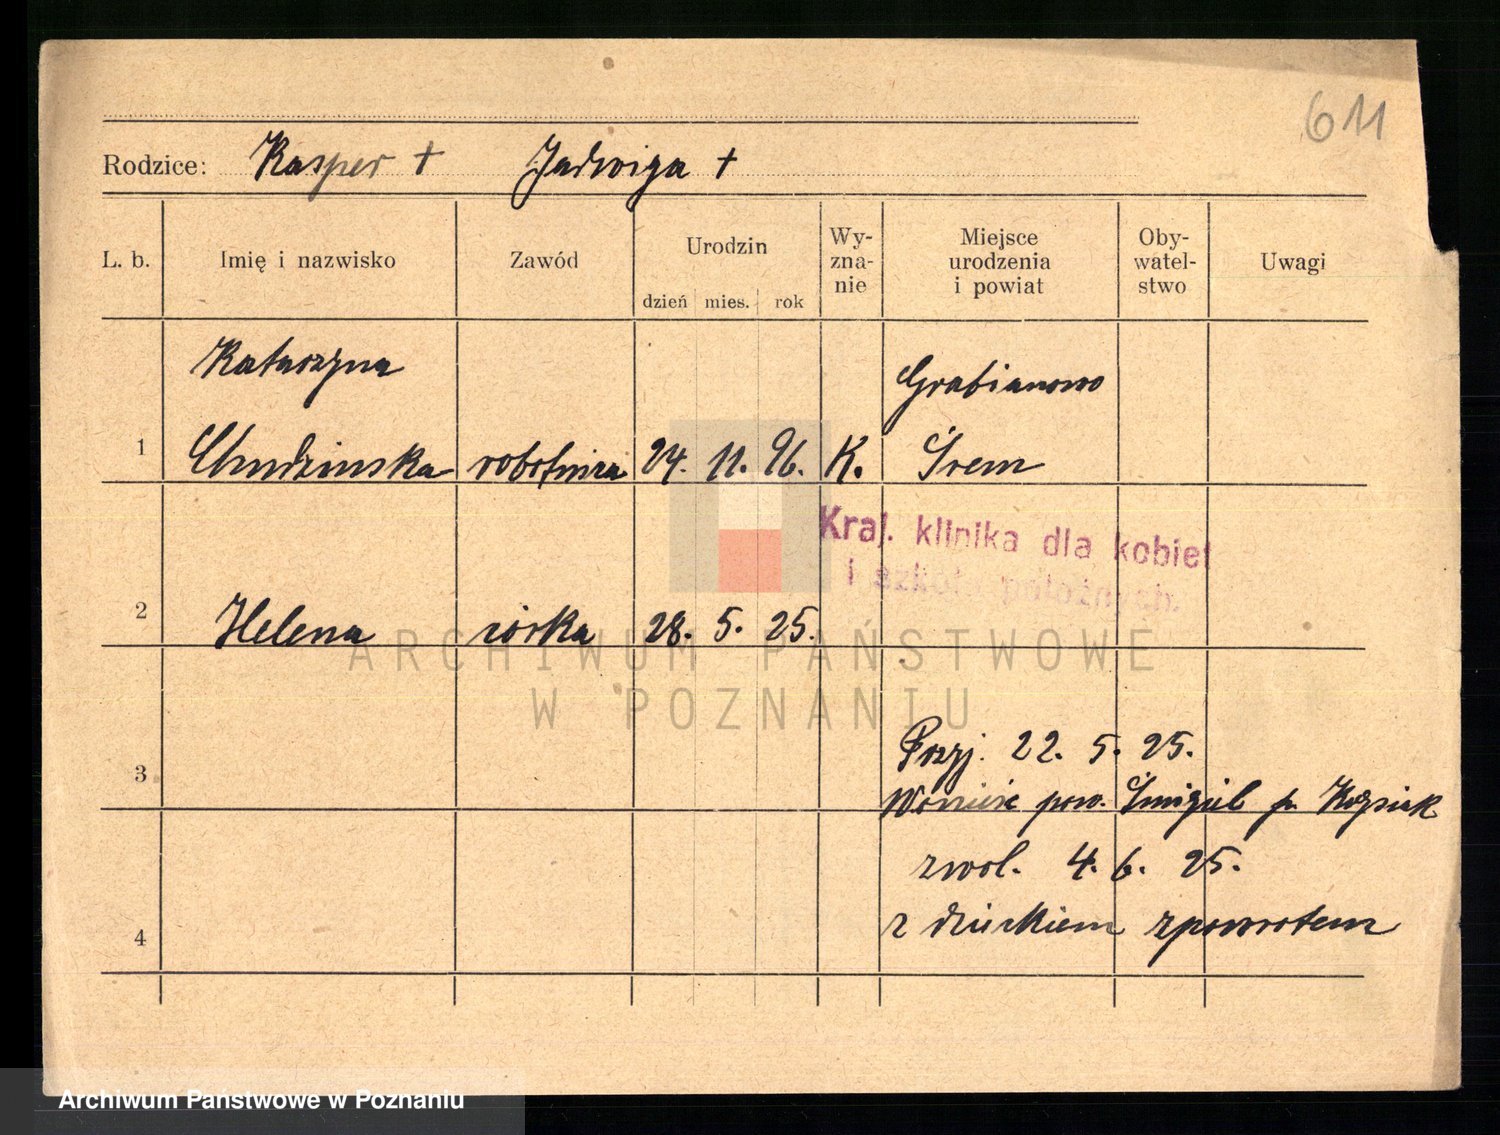 611
Rodzice: Kasper + Jadwiga +
L. b. Imię i nazwisko Zawód Urodzin dzień mies. rok Wy- zna- nie Miejsce urodzenia i powiat Oby- watel- stwo Uwagi
Katarzyna Grabianowo
1 Chudzinska robotnica 24. 11. 96. K. Śrem
Kraj. klinika dla kobiet
i szkoła położnych.
2 Helena córka 28. 5. 25.
ARCHIWUM PAŃSTWOWE
W POZNANIU
Przyj. 22. 5. 25.
3
Wonieść pow. Śmigiel
zwol. 4. 6. 25.
4 z dzieckiem zpowrotem
Archiwum Państwowe w Poznaniu